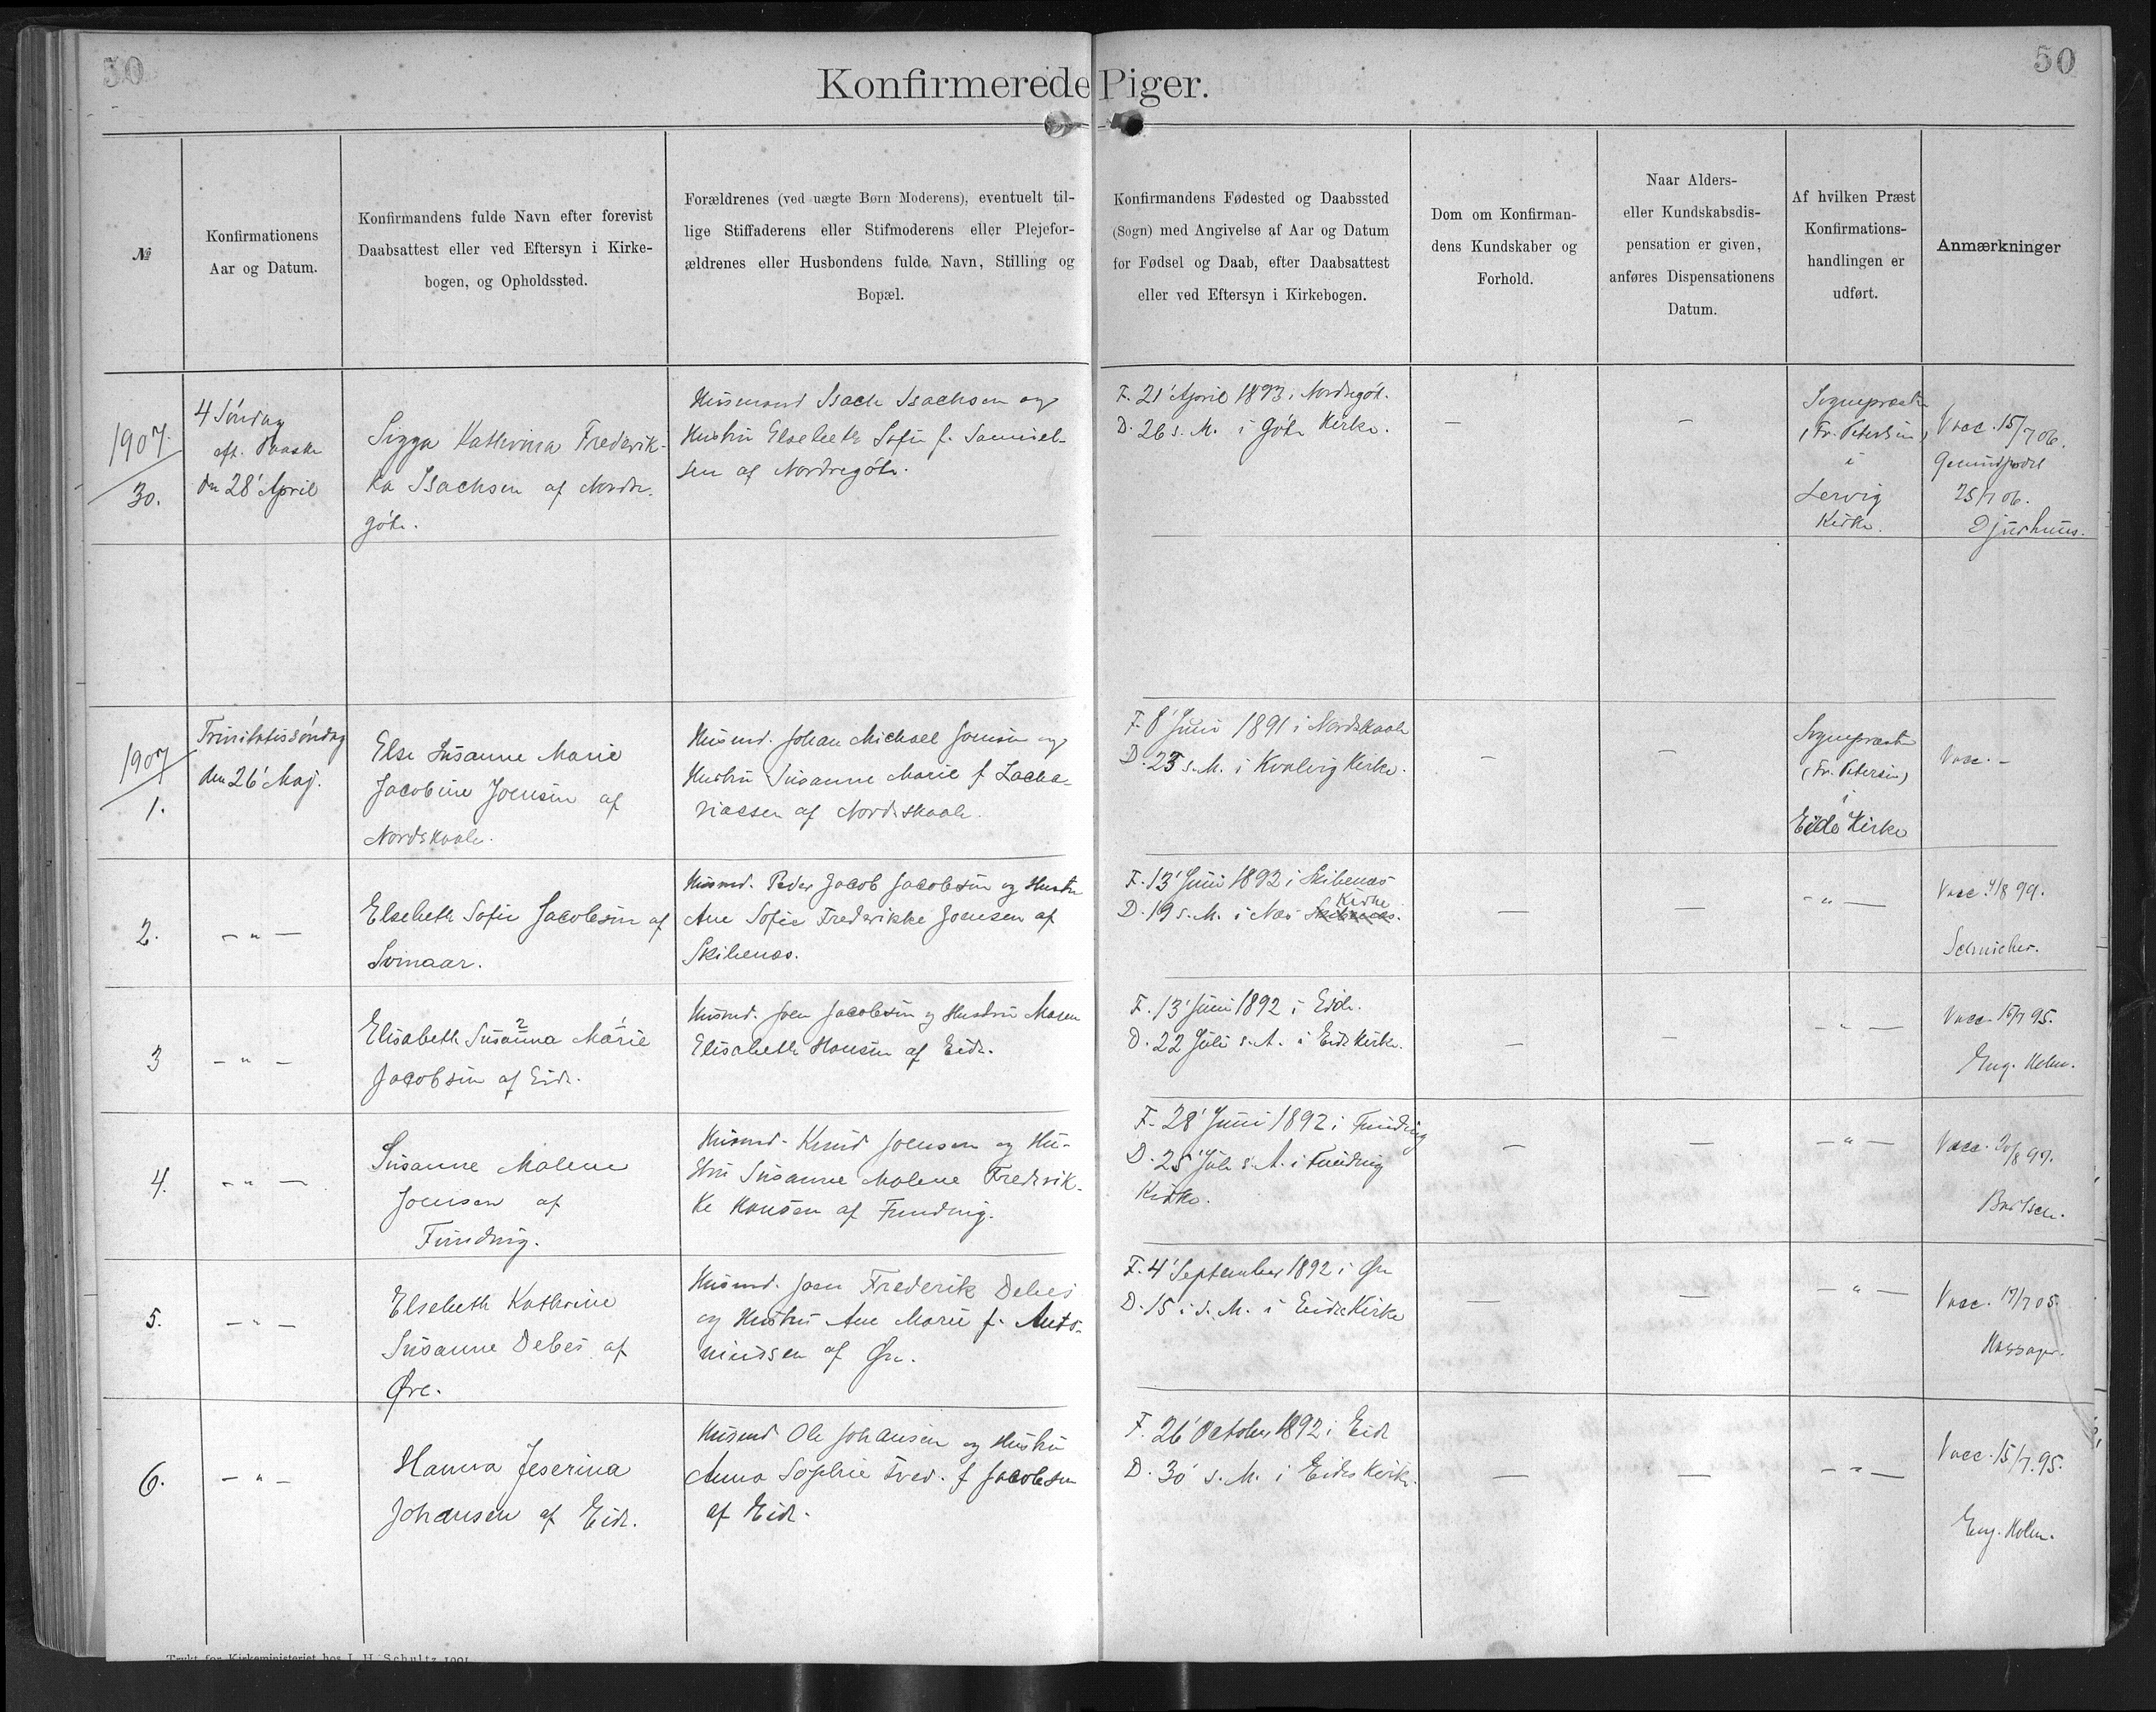 50
50
Konfirmerede Piger.
№
Konfirmationens
Aar og Datum.
Konfirmandens fulde Navn efter forevist
Daabsattest eller ved Eftersyn i Kirke-
bogen, og Opholdssted.
Forældrenes (ved uægte Børn Moderens), eventuelt til-
lige Stiffaderens eller Stifmoderens eller Plejefor-
ældrenes eller Husbondens fulde Navn, Stilling og
Bopæl.
Konfirmandens Fødested og Daabssted
(Sogn) med Angivelse af Aar og Datum
for Fødsel og Daab, efter Daabsattest
eller ved Eftersyn i Kirkebogen.
Dom om Konfirman-
dens Kundskaber og
Forhold.
Naar Alders-
eller Kundskabsdis-
pensation er given,
anføres Dispensationens
Datum.
Af hvilken Præst
Konfirmations-
handlingen er
udført.
Anmærkninger
1907.
30.
4 Söndag
eft. Paaske
den 28' April
Sigga Kathrina Frederik-
ka Isachsen af Nordre-
göte.
Husmand Isach Isachsen og
Hustru Elsebeth Sofie f. Samuel-
sen af Nordregöte.
F. 21' April 1893 i Nordregöt.
D. 26 s. M. i Göte Kirke.
—
—
Sognepræsten
(Fr. Petersen)
i
Lervig
Kirke.
Vacc. 15/7 06.
25/7 06.
Djurhuus.
1907
1.
Trinitatissöndag
den 26' Maj.
Else Susanne Marie
Jacobine Joensen af
Nordskaale.
Husmd. Johan Michael Joensen og
Hustru Susanne Marie f Zacha-
riassen af Nordskaale.
F. 8' Juni 1891 i Nordskaale
D. 25 s. M. i Kvalvig Kirke.
—
—
Sognepræsten
(Fr. Petersen)
i
Eide Kirke
Vacc. —
2.
— " —
Elsebeth Sofie Jacobsen af
Svinaar.
Husmd. Peder Jacob Jacobsen og Hustru
Ane Sofie Frederikke Joensen af
Skibenæs.
F. 13' Juni 1892 i Skibenæs
Kirke
D. 19 s. M. i Næs Skibenæs.
—
—
— " —
Vacc 4/8 99.
3
— " —
Elisabeth Susanna Marie
Jacobsen af Eide.
Husmd. Joen Jacobsen og Hustru Maren
Elisabeth Hansen af Eide.
F. 13' Juni 1892 i Eide.
D. 22 Juli s. A. i Eide Kirke.
—
—
— " —
Vacc 15/7 95.
Eug. Holm.
4.
— " —
Susanne Malene
Joensen af
Funding.
Husmd. Knud Joensen og Hu-
stru Susanne Malene Frederik-
ke Hansen af Funding.
F. 28' Juni 1892 i Funding
D. 25' Juli s. A. i Funding
Kirke.
—
—
— " —
Vacc. 20/8 97.
Bartsch.
5.
— " —
Elsebeth Kathrine
Susanne Debes af
Øre.
Husmd. Joen Frederik Debes
og Hustru Ane Marie f. Anto-
niussen af Øre.
F. 4' September 1892 i Øre
D. 15 i s. M. i Eide Kirke
—
—
— " —
Vacc. 17/7 05.
6.
— " —
Hanna Jeserina
Johansen af Eide.
Husmd Ole Johansen og Hustru
Anna Sophie Fred. f Jacobsen
af Eide.
F. 26' October 1892 i Eide
D. 30' s. M. i Eides Kirke.
—
—
— " —
Vacc. 15/7. 95.
Eug. Holm.
Trykt for Kirkeministeriet hos J. H. Schultz 1901